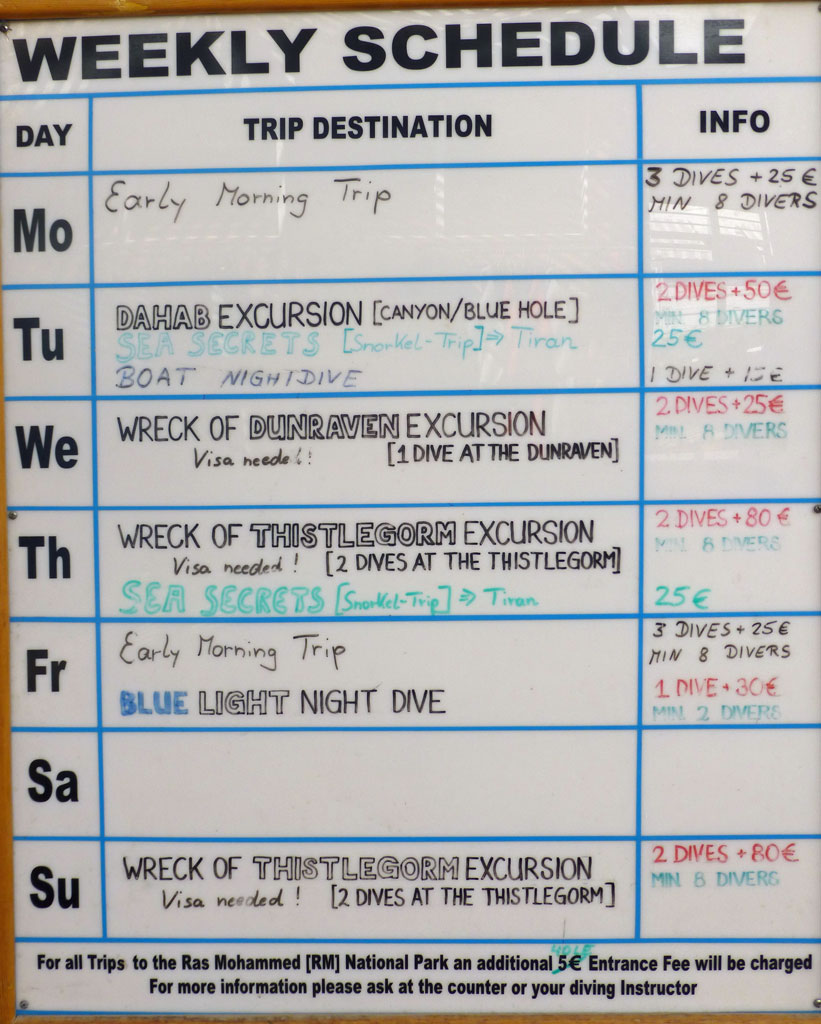 WEEKLY SCHEDULE
DAY TRIP DESTINATION INFO
Mo
Early Morning Trip
3 DIVES + 25 €
MIN 8 DIVERS
Tu
DAHAB EXCURSION [CANYON/BLUE HOLE]
2 DIVES + 50€
MIN. 8 DIVERS
SEA SECRETS [Snorkel-Trip] ⇒ Tiran
25€
BOAT NIGHTDIVE
1 DIVE + €
We
WRECK OF DUNRAVEN EXCURSION
2 DIVES+25€
Visa !! [1 DIVE AT THE DUNRAVEN]
MIN. 8 DIVERS
Th
WRECK OF THISTLEGORM EXCURSION
2 DIVES+80 €
Visa needed ! [2 DIVES AT THE THISTLEGORM]
MIN. 8 DIVERS
SEA SECRETS [Snorkel-Trip] ⇒ Tiran
25€
Fr
Early Morning Trip
3 DIVES + 25€
MIN 8 DIVERS
BLUE LIGHT NIGHT DIVE
1 DIVE + 30€
MIN. 2 DIVERS
Sa
Su
WRECK OF THISTLEGORM EXCURSION
2 DIVES +80€
Visa needed ! [2 DIVES AT THE THISTLEGORM]
MIN 8 DIVERS
For all Trips to the Ras Mohammed [RM] National Park an additional 5€ Entrance Fee will be charged
For more information please ask at the counter or your diving Instructor